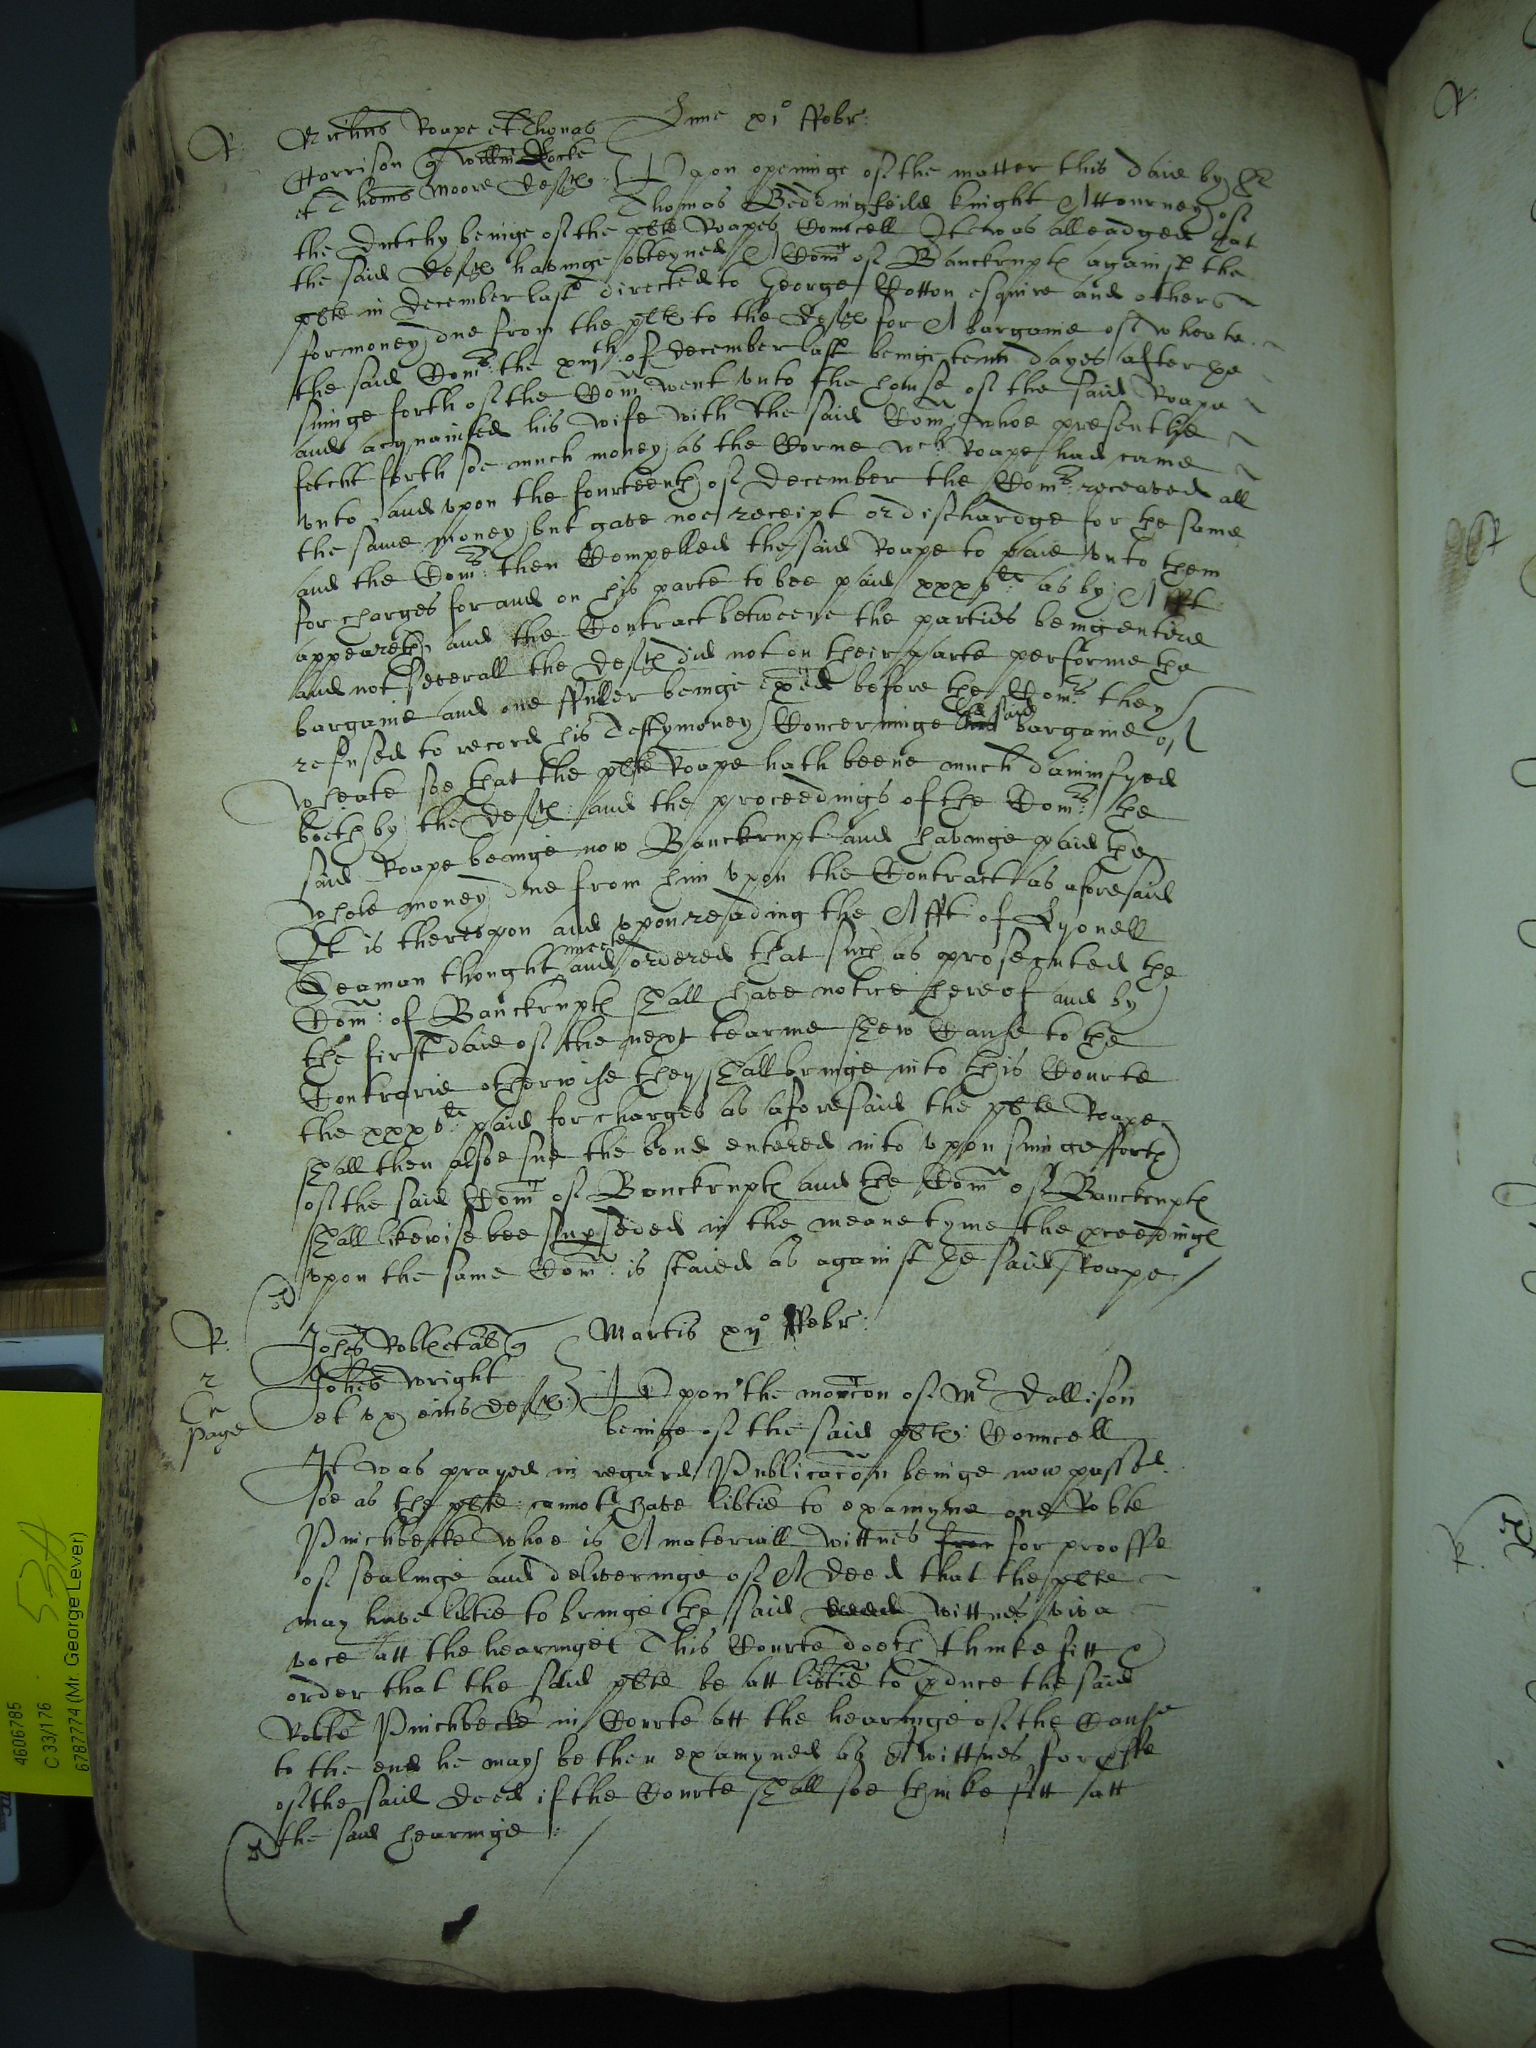 R: Richus Roape et Thomas
Lune xi° ffebr:
Harrison q Willm Locke
et Thoms Moore deftes
Upon openinge of the matter this daie by Sr
Thomas Bedingfeild knight Attourney of
the Dutchy beinge of the plte Roapes Councell It was alleadged that
the said deftes havinge obteyned A Com of Banckrupts against the
plte in december last directed to George Cotton esquire and others
for money due from the plts to the deftes for A bargaine of wheate
the said Comrs the xiijth of december last beinge tenn dayes after the
suinge forth of the Com went unto the house of the said Roape
and acquainted his wife with the said Com whoe presentlie
fetcht forth soe much money as the Corne wch Roape had came
unto and upon the fourteenth of december the Comrs receaved all
the same money but gave noe receipt or dischardge for the same
and the Comrs then Compelled the said Roape to paie unto them
for charges for and on his parte to bee paid xxxvli as by Afft
appeareth and the Contract betweene the parties being entire
and not severall the deftes did not on their parte performe the
bargaine and one ffuller beinge exed before the Comrs they
refused to record his Testymoney Concerninge the said bargaine of
wheate soe that the plte Roape hath beene much damnifyed
both by the deftes and the proceedings of the Comrs the
said Roape beinge now Banckrupt and havinge paid the
whole money due from him upon the Contract as aforesaid
It is thereupon and upon reading the Afft of Lyonell
Seaman thought meete and ordered that such as prosecuted the
Com: of Banckrupts shall have notice hereof and by
the first daie of the next tearme shew Cause to the
Contrarie otherwise they shall bringe into this Courte
the xxxvli paid for charges as aforesaid the plte Roape
shall then alsoe sue the bond entered into upon suinge forth
of the said Com of Banckrupts and the Com of Banckrupts
shall likewise bee supseded in the meane tyme the pceedings
upon the same Com: is staied as against the said Roape
R:
2
Cr
page
Johes
Martis xij° ffebr:
Johes Wright
et ux eius deftes
Upon the mocon of Mr Dallison
beinge of the said plts Councell
It was prayed in regard Publicacon beinge now passed
soe as the plte cannot have libtie to examyne one Robte
Pinchbecke whoe is A materiall wittnes for prooffe
of sealinge and deliveringe of A deed that the plte
may have libtie to bringe the said wittnes viva
voce att the hearinge This Courte doeth thinke fitt &
order that the said plte be att libtie to pduce the said
Robte Pinchbecke in Courte att the hearinge of the Cause
to the end he may be then examyned as A wittnes for
of the said deed if the Courte shall soe thinke fitt att
the said hearinge
53A
4606785
C 33/176
6787774 (Mr. George Lever)